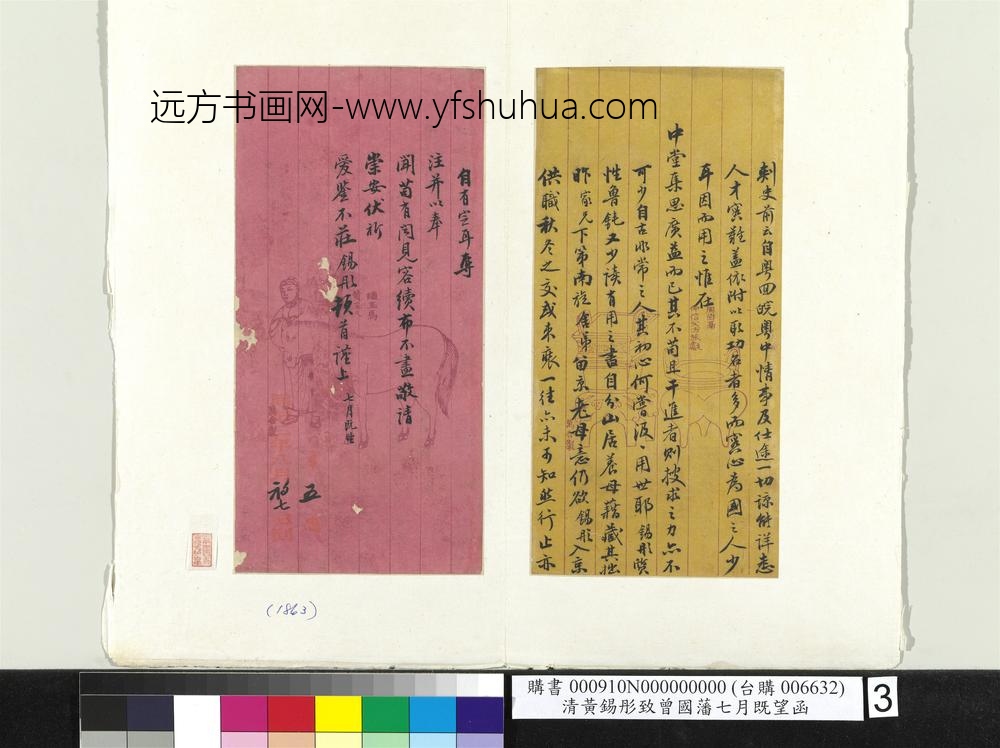 远方书画网-www.yfshuhua.com
刺史前云自粵回皖粵中情事及仕途一切諒能詳悉
人才寔難蓋依附以取功名者多而寔心為國之人少
耳因而用之惟在
中堂集思廣益而已其不苟且干進者則搜求之力亦不
可少自古非常之人其初心何嘗汲、用世耶錫彤
性魯鈍又少讀有用之書自分山居養母藉藏其拙
昨家兄下第南旋舍弟留京老母意仍欲錫彤入京
供職秋冬之交或束裝一往亦未可知然行止亦
自有定耳專
注并以奉
聞苟有聞見容續布不盡敬請
崇安伏祈
愛鑒不莊錫彤頓首謹上 七月既望
五
(1863)
購書 000910N000000000 (台購 006632)
清黃錫彤致曾國藩七月既望函
3